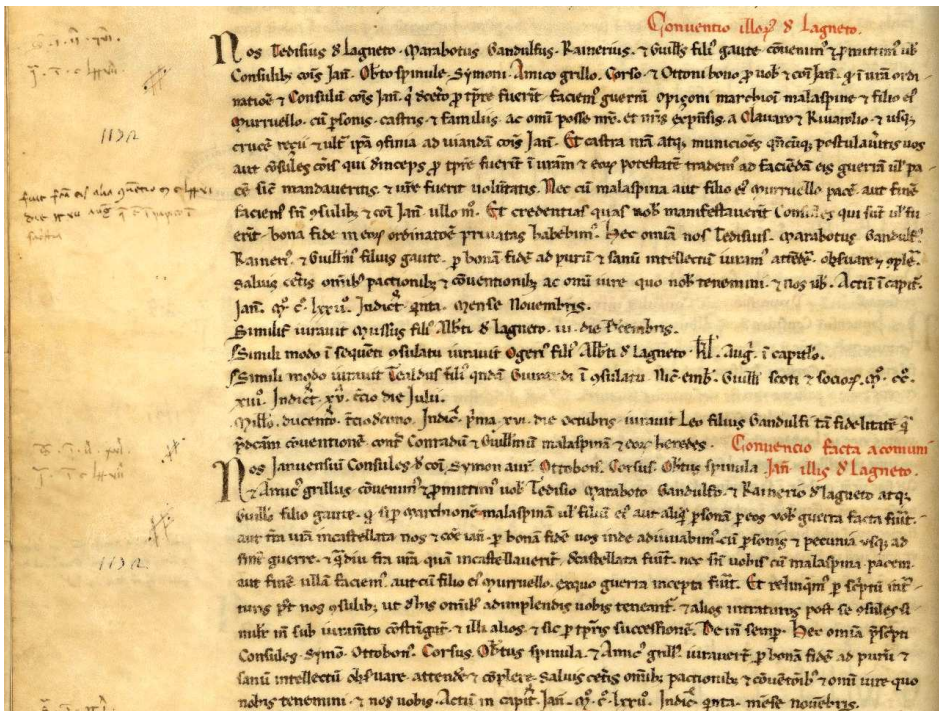 Conventio illoꝝ d Lagneto.
Nos Tedisius d Lagneto. Marabotus Gandulfus. Rainerius. ⁊ Guillꝰ filiꝰ gaute. cōvenimꝰ ⁊ ꝓmittimꝰ uob
Consulibꝫ cōis Jan. Obto spinule. Symoni. Amico grillo. Corso. ⁊ Ottoni bono ꝓ uob ⁊ cōi Jan. q i ura ordi
natiōe ⁊ Consulū cōis Jan. q dceto ꝓ tpre fuerit faciemꝰ guerrā opiçoni marchioi malaspine ⁊ filio eiꝰ
Murruello. cū ꝑsonis. castris ⁊ familiis ac om̄i posse nrō. et nrīs expensis. a Clavaro ⁊ Rivarolio ⁊ usqꝫ
ad viandā cōis Jan. Et castra nrā atqꝫ municiōes postulauitis uos
aut cōsules cōis qui dinceps ꝓ tpre fuerit i urām ⁊ eoꝝ potestatē tradem ad faciēdā eis guerrā ul pa
cē sic̄ mandaueritis. ⁊ urē fuerit uolūtatis. Nec cū malaspina aut filio eiꝰ murruello pacē aut finē
faciemꝰ sn ꝯsulibꝫ ⁊ cōi Jan. ullo mō. Et credentias quas nob manifestauerit Consules qui sūt ul fu
erīt. bona fide in eoꝝ ordinatōe priuatas habebimꝰ. Hec omīa nos Tedisius. Marabotus Gandulfꝰ.
Rainerꝰ. ⁊ Guillmꝰ filius gaute. ꝑ bonā fidē ad purū ⁊ sanū intellectū iuramꝰ attēdē. obseruare ⁊ ꝯplē.
saluis cetis omībꝫ pactionibꝫ ⁊ cōuentionibꝫ ac omī iure quo nob tenemini. ⁊ nos ub. Actū i capit.
Jan. Mͦ. Cͦ. lxxiiͦ. Indict qnta. mense Nouembris.
Similit iurauit Mussus filiꝰ Albti d lagneto. iii. die Decembris.
Simili modo i sequēti ꝯsulatu iurauit Ogeriꝰ filiꝰ Albti d Lagneto. kl. Aug. i capitlo.
Simili modo iurauit Tealdus filiꝰ qndā Guirardi i ꝯsulatu Nic̄ embꝰ. Guilli scoti ⁊ socioꝝ. Mͦ. CCͦ.
xiiͦ. Indict. xv. tcio die Julii.
Millo. ducento. tcio decimo. Indic. pma. xvi. die octubris. iurauit Leo filius Gandulfi tā fidelitatē q
pdcām cōuentionē. cont Conradū ⁊ Guillmū malaspinā ⁊ eoꝝ heredes. Convencio facta a comuni
Nos Januensiū Consules d cōi. Symon aur. Ottobonꝰ. Corsus. Obtus spinula. Jan illis d Lagneto.
⁊ Amicꝰ grillus. cōuenimꝰ ⁊ ꝓmittimꝰ uob Tedisio Maraboto Gandulfo. ⁊ Rainerio d lagneto atqꝫ
Guillō filio gaute. q si ꝑ Marchionē malaspinā ul filiū eiꝰ aut aliqꝫ ꝑsonā ꝑ eos uob guerra facta fuit.
aut tra urā incastellata nos ⁊ cōe ian. ꝑ bonā fidē uos inde adiuuabimꝰ. cū ꝑsonis ⁊ pecunia usqꝫ ad
finē guerre. ⁊ qdiu tra urā quā incastellauerit. dcastellata fuit. nec sn uobis cū malaspina pacem
aut finē ullā faciemꝰ. aut cū filio eiꝰ murruello. exquo guerra incepta fuit. Et relinqmꝰ ꝑ scptū int
turis pt nos ꝯsulibꝫ ut dhis omibꝫ adimplendis uobis teneant. ⁊ alios intraturos post se ꝯsules si
milit in sub iuramto cōstringat. ⁊ illi alios. ⁊ sic ꝑ tprīs successionē. De in semp. Hec omīa pscpti
Consules. Symō. Ottobonꝰ. Corsus. Obtus spinula. ⁊ Amicꝰ grillꝰ. iurauert ꝑ bonā fidē ad purū ⁊
sanū intellectū obseruare. attende ⁊ cōplere. saluis cetis omibꝫ pactionibꝫ ⁊ cōuētōibꝫ ⁊ omī iure quo
nobis tenemini. ⁊ nos uobis. Actū in capit. Jan. Mͦ. Cͦ. lxxiiͦ. Indic qnta. mēse nouēbris.